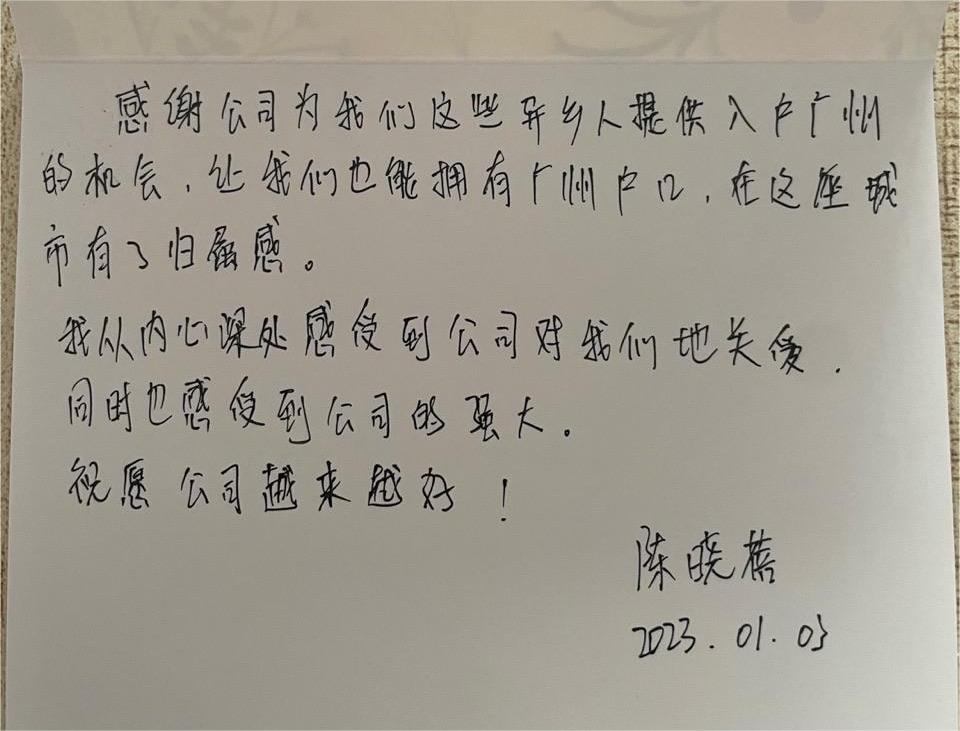 感谢公司为我们这些异乡人提供入户广州
的机会，让我们也能拥有广州户口，在这座城
市有了归属感。
我从内心深处感受到公司对我们地关爱，
同时也感受到公司的强大。
祝愿公司越来越好！
陈晓蓓
2023.01.03